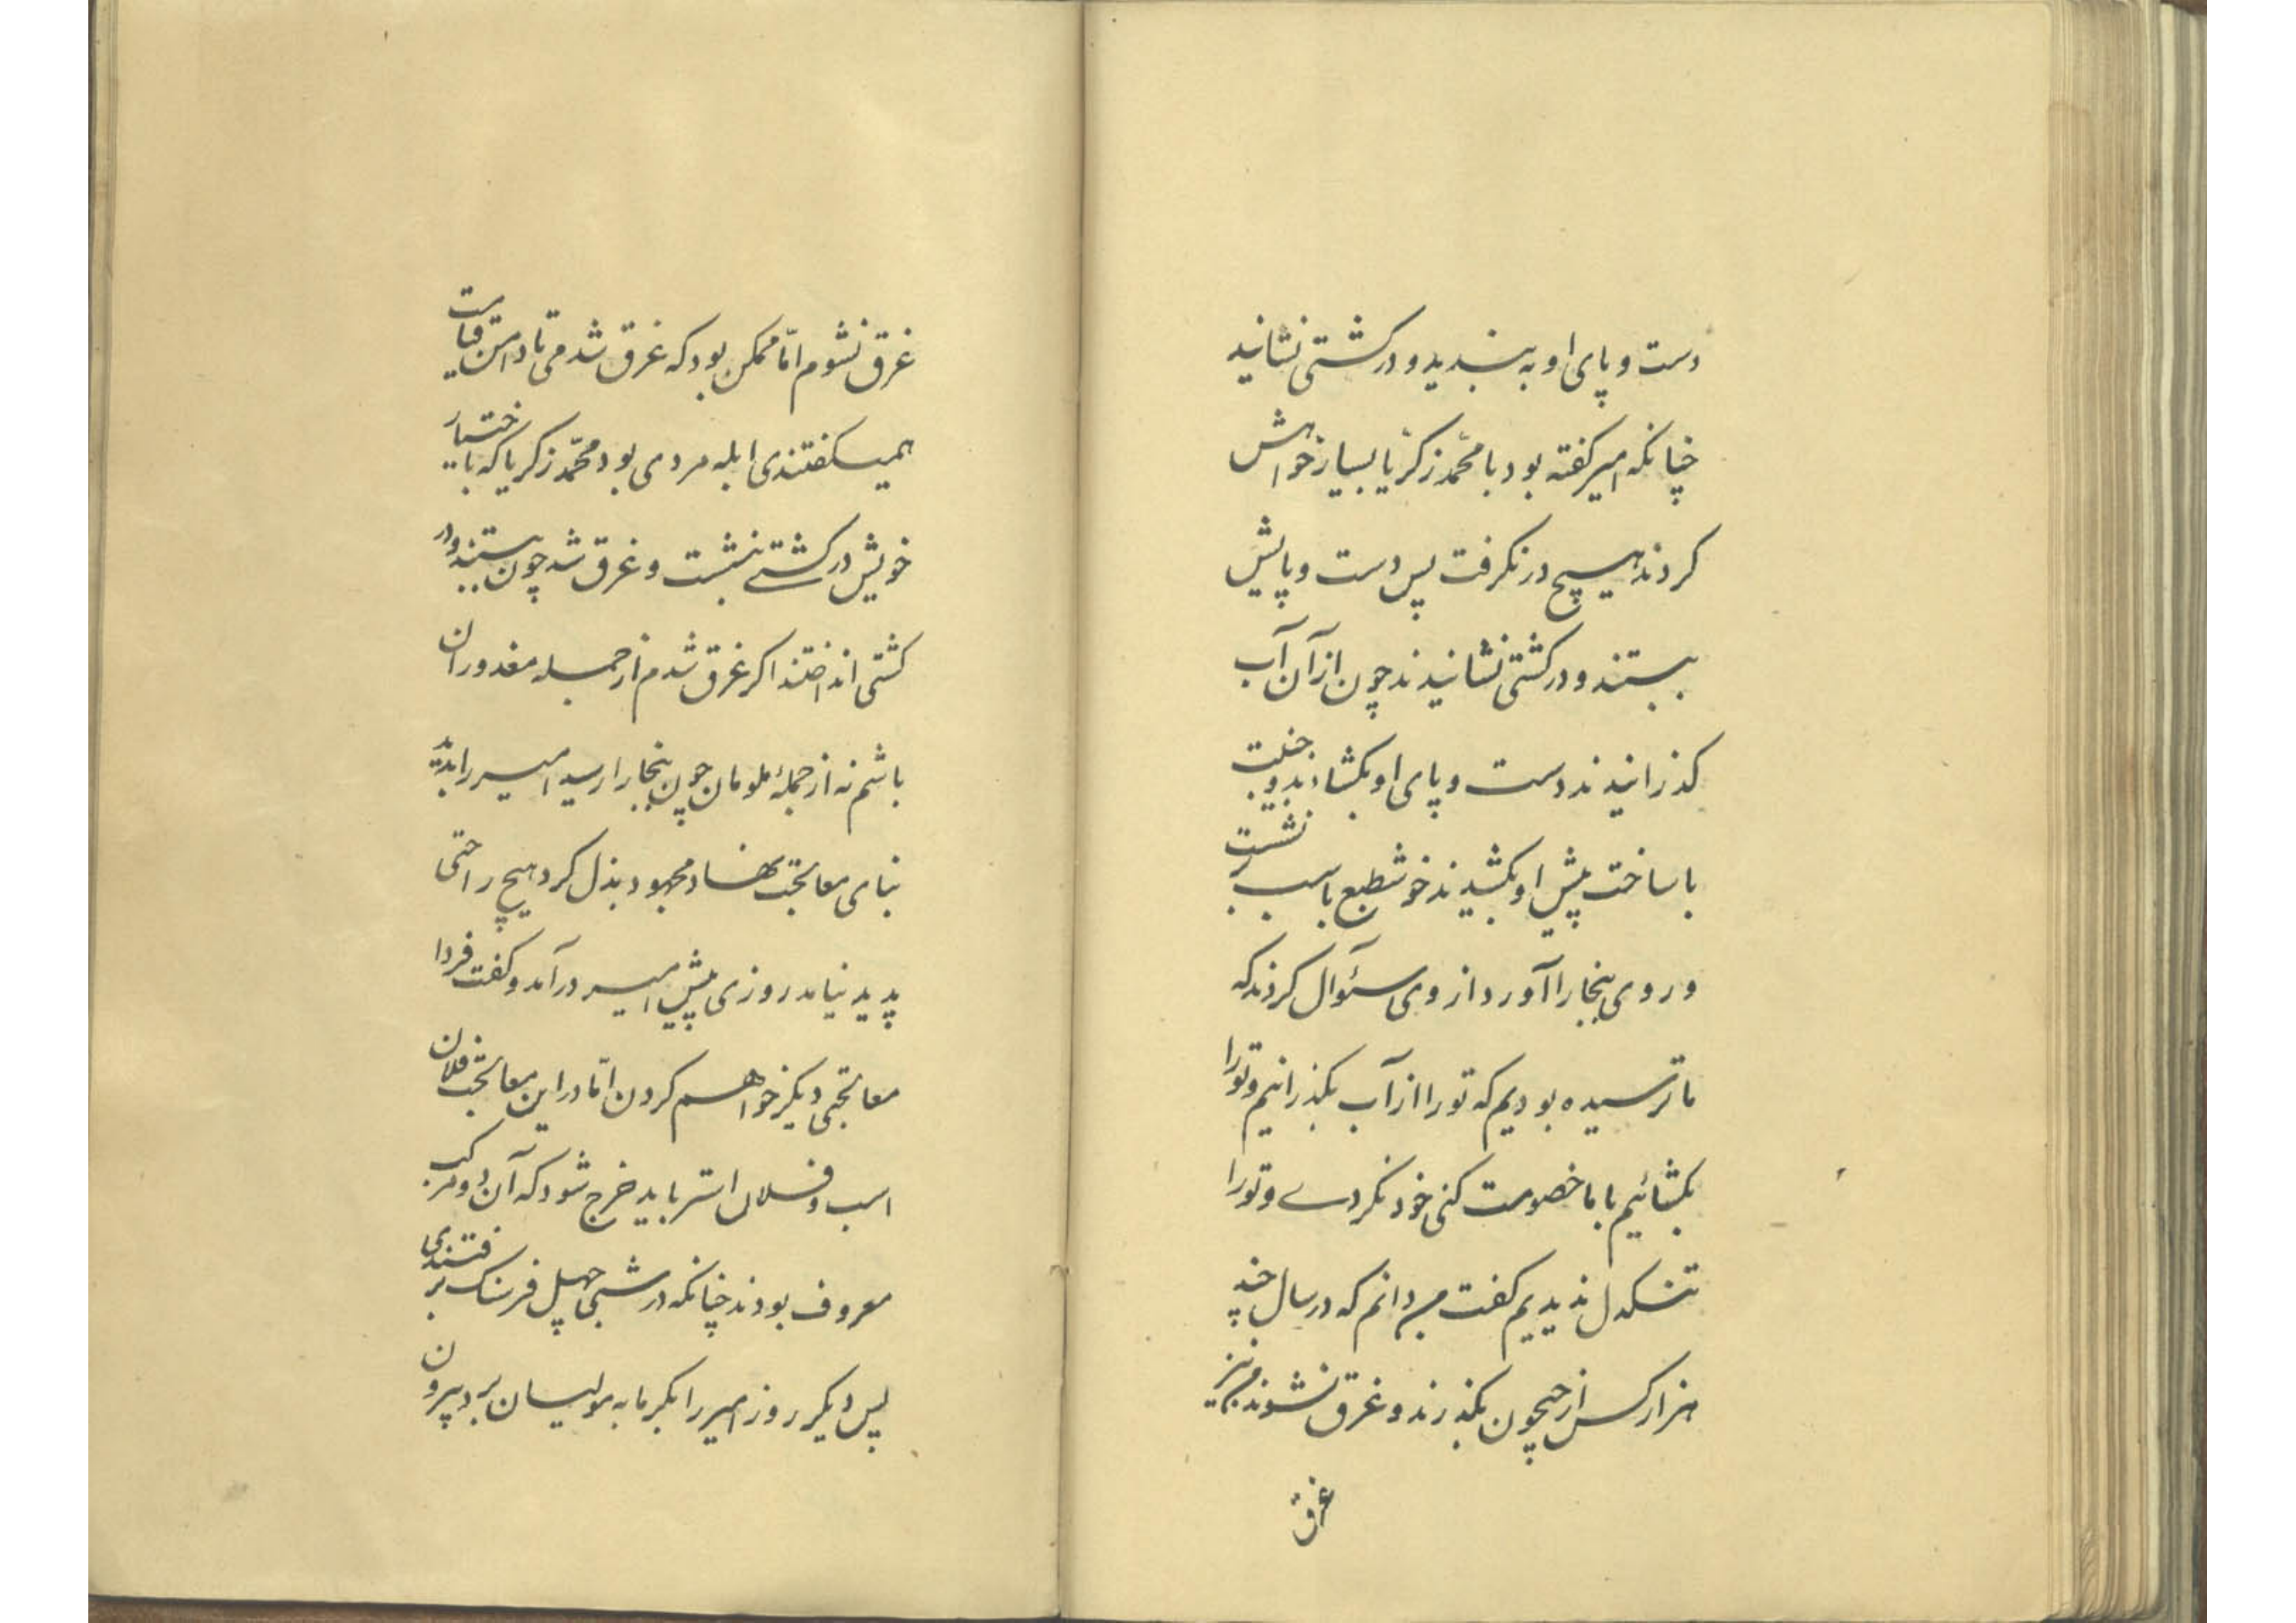 دست و پای او به بندید و در کشتی نشانید
چنانکه امیر کفته بود با محمّد زکرّیا بسیار خواهش
کردند هیچ در نکرفت پس دست و پایش
ببستند و در کشتی نشانیدند چون از آن آب
کذرانیدند دست و پای او بکشادند و جنیبت
با ساخت پیش او بکشیدند خوش طبع باسب بر نشست
و روی ببخارا آورد از وی سئوال کردند که
ما ترسیده بودیم که تو را از آب بکذرانیم و تو را
بکشائیم با ما خصومت کنی خود نکردے و تو را
تنکدل ندیدیم کفت من دانم که در سال چند
هزار کس از جیحون بکذرند و غرق نشوند من نیز
غرق
غرق نشوم امّا ممکن بود که غرق شدمی تا دامن قیامت
همیکفتندی ابله مردی بود محمّد زکریا که باختیار
خویش در کشتے نشست و غرق شد چون ببستند و در
کشتی انداختند اکر غرق شدم از جمله معذوران
باشم نه از جملهٔ ملومان چون ببخارا رسید امیر را بدید
بنای معالجت نهاد و مجهود بذل کرد هیچ راحتی
پدید نیامد روزی پیش امیر درآمد و کفت فردا
معالجتی دیکر خواهم کردن امّا در این معالجت فلان
اسب و فلان استر باید خرج شود که آن دو مرکب
معروف بودند چنانکه در شبی چهل فرسنک برفتندی
پس دیکر روز امیر را بکرمابه مولیان برد بیرون